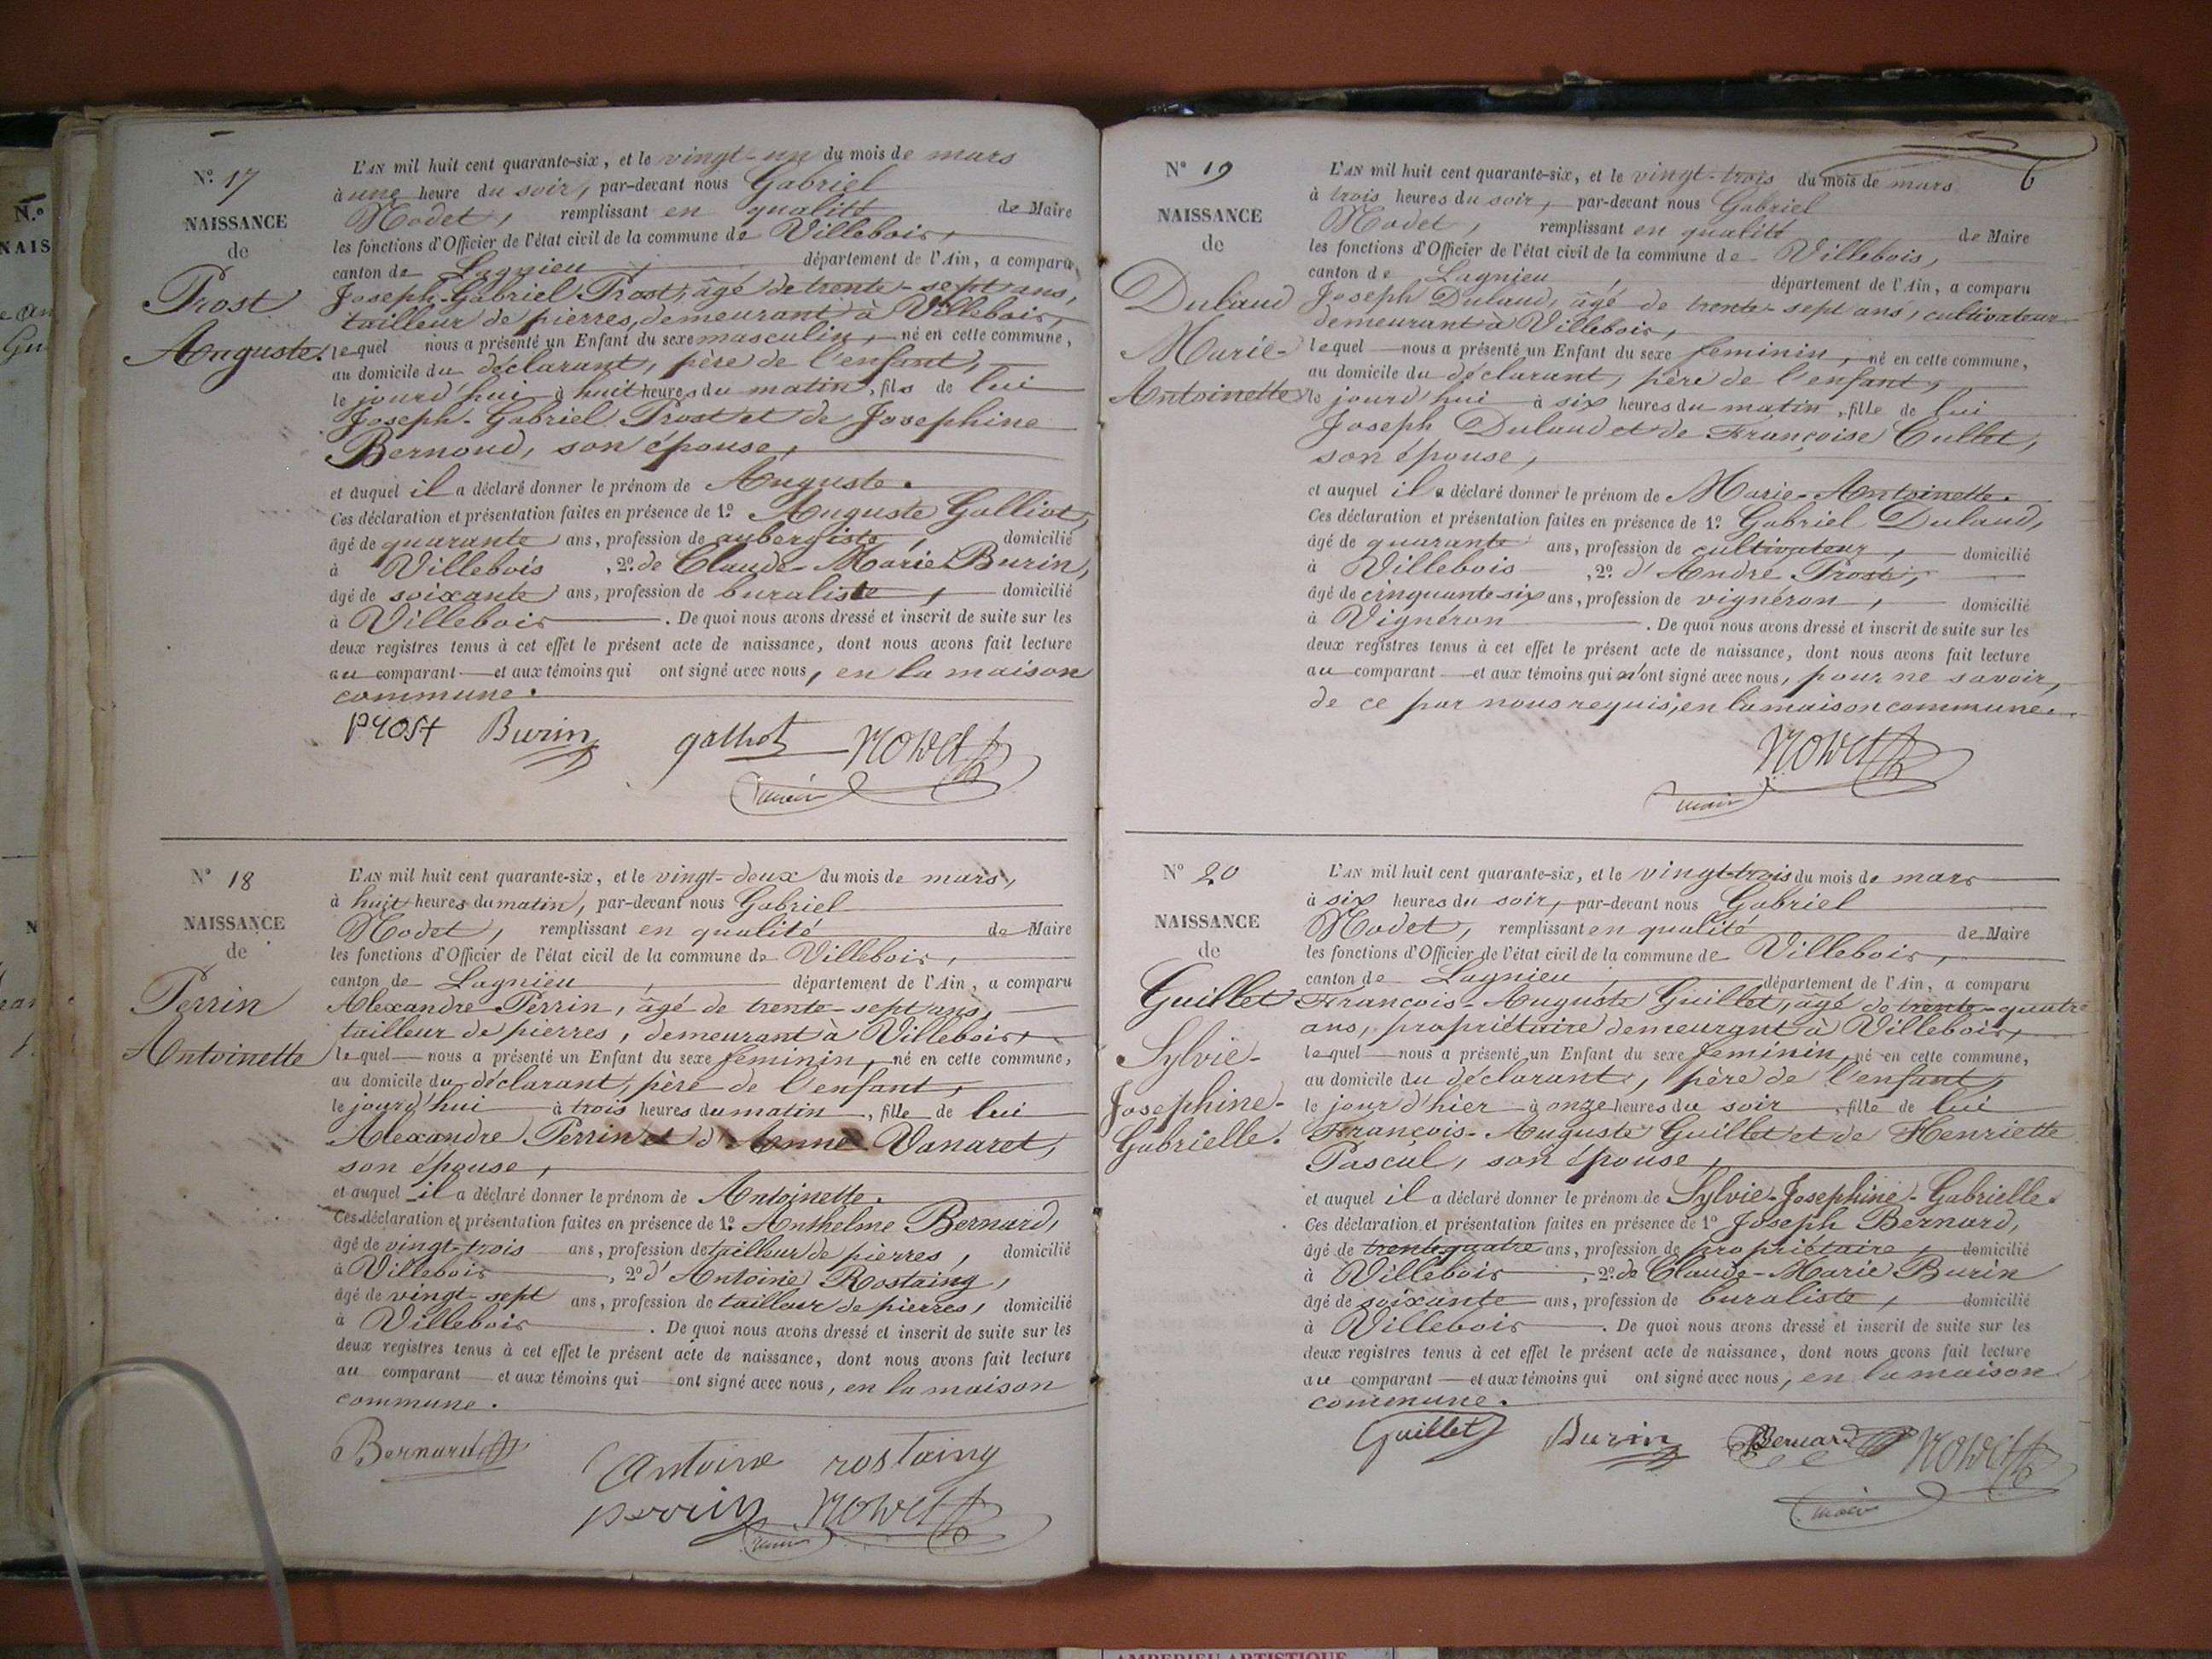 N.º 17
NAISSANCE
de
Prost
Auguste.
L'AN mil huit cent quarante-six, et le vingt-un du mois de mars
à une heure du soir, par-devant nous Gabriel
Nodet, remplissant en qualité de Maire
les fonctions d'Officier de l'état civil de la commune de Villebois,
canton de Lagnieu, département de l'Ain, a comparu
Joseph-Gabriel Prost, âgé de trente-sept ans,
tailleur de pierres, demeurant à Villebois,
lequel nous a présenté un Enfant du sexe masculin, né en cette commune,
au domicile du déclarant, père de l'enfant,
le jourd'hui à huit heures du matin, fils de lui
Joseph-Gabriel Prost et de Josephine
Bernond, son épouse,
et auquel il a déclaré donner le prénom de Auguste.
Ces déclaration et présentation faites en présence de 1º Auguste Galliot,
âgé de quarante ans, profession de aubergiste, domicilié
à Villebois, 2º de Claude-Marie Burin,
âgé de soixante ans, profession de buraliste, domicilié
à Villebois. De quoi nous avons dressé et inscrit de suite sur les
deux registres tenus à cet effet le présent acte de naissance, dont nous avons fait lecture
au comparant et aux témoins qui ont signé avec nous, en la maison
commune.
Prost Burin galliot Nodet
maire
Nº 18
NAISSANCE
de
Perrin
Antoinette
L'AN mil huit cent quarante-six, et le vingt-deux du mois de mars,
à huit heures du matin, par-devant nous Gabriel
Nodet, remplissant en qualité de Maire
les fonctions d'Officier de l'état civil de la commune de Villebois,
canton de Lagnieu, département de l'Ain, a comparu
Alexandre Perrin, âgé de trente-sept ans,
tailleur de pierres, demeurant à Villebois,
lequel nous a présenté un Enfant du sexe féminin, né en cette commune,
au domicile du déclarant, père de l'enfant,
le jourd'hui à trois heures du matin, fille de lui
Alexandre Perrin et d'Anne Vanaret,
son épouse,
et auquel il a déclaré donner le prénom de Antoinette.
Ces déclaration et présentation faites en présence de 1º Anthelme Bernard,
âgé de vingt-trois ans, profession de tailleur de pierres, domicilié
à Villebois, 2º d'Antoine Rostaing,
âgé de vingt-sept ans, profession de tailleur de pierres, domicilié
à Villebois. De quoi nous avons dressé et inscrit de suite sur les
deux registres tenus à cet effet le présent acte de naissance, dont nous avons fait lecture
au comparant et aux témoins qui ont signé avec nous, en la maison
commune.
Bernard Antoine rostaing
perrin Nodet
maire
6
Nº 19
NAISSANCE
de
Dulaud
Marie-
Antoinette
L'AN mil huit cent quarante-six, et le vingt-trois du mois de mars
à trois heures du soir, par-devant nous Gabriel
Nodet, remplissant en qualité de Maire
les fonctions d'Officier de l'état civil de la commune de Villebois,
canton de Lagnieu, département de l'Ain, a comparu
Joseph Dulaud, âgé de trente-sept ans, cultivateur
demeurant à Villebois,
lequel nous a présenté un Enfant du sexe féminin, né en cette commune,
au domicile du déclarant, père de l'enfant,
le jourd'hui à six heures du matin, fille de lui
Joseph Dulaud et de Françoise Cullet,
son épouse,
et auquel il a déclaré donner le prénom de Marie-Antoinette.
Ces déclaration et présentation faites en présence de 1º Gabriel Dulaud,
âgé de quarante ans, profession de cultivateur, domicilié
à Villebois, 2º d'André Prost,
âgé de cinquante-six ans, profession de vignéron, domicilié
à Vignéron. De quoi nous avons dressé et inscrit de suite sur les
deux registres tenus à cet effet le présent acte de naissance, dont nous avons fait lecture
au comparant et aux témoins qui n'ont signé avec nous, pour ne savoir,
de ce par nous requis, en la maison commune.
Nodet
maire
Nº 20
NAISSANCE
de
Guillet
Sylvie-
Josephine-
Gabrielle.
L'AN mil huit cent quarante-six, et le vingt-trois du mois de mars
à six heures du soir, par-devant nous Gabriel
Nodet, remplissant en qualité de Maire
les fonctions d'Officier de l'état civil de la commune de Villebois,
canton de Lagnieu, département de l'Ain, a comparu
François-Auguste Guillet, âgé de trente-quatre
ans, propriétaire demeurant à Villebois,
lequel nous a présenté un Enfant du sexe féminin, né en cette commune,
au domicile du déclarant, père de l'enfant,
le jour d'hier à onze heures du soir, fille de lui
François-Auguste Guillet et de Henriette
Pascal, son épouse,
et auquel il a déclaré donner le prénom de Sylvie-Josephine-Gabrielle.
Ces déclaration et présentation faites en présence de 1º Joseph Bernard,
âgé de trente-quatre ans, profession de propriétaire, domicilié
à Villebois, 2º de Claude-Marie Burin
âgé de soixante ans, profession de buraliste, domicilié
à Villebois. De quoi nous avons dressé et inscrit de suite sur les
deux registres tenus à cet effet le présent acte de naissance, dont nous avons fait lecture
au comparant et aux témoins qui ont signé avec nous, en la maison
commune.
Guillet Burin Bernard Nodet
maire